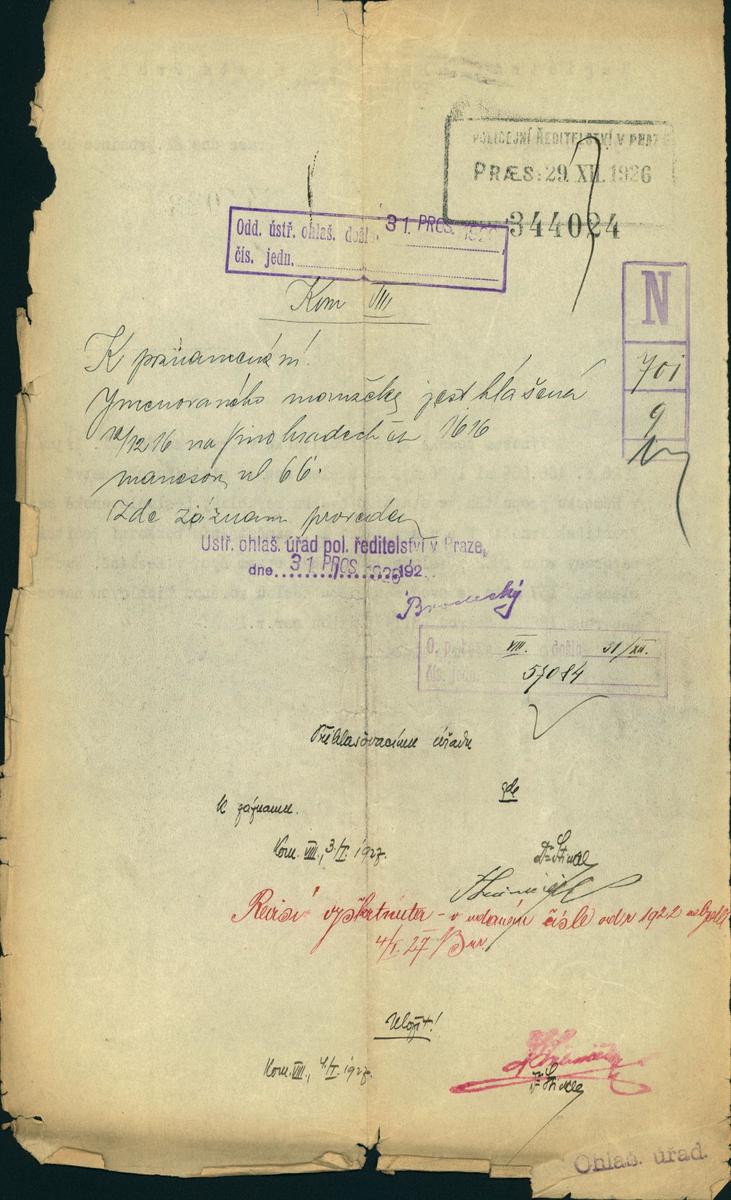 POLICEJNÍ ŘEDITELSTVÍ V PRAZE
PRÆS: 29. XII. 1926
344024
Odd. ústř. ohlaš. došlo 31. PROS. 1926
čís. jedn.
N
701
9
Kom VIII
K poznamenání.
Jmenovaného manželka jest hlášena
12/12 16 na Vinohradech čp. 1616
mánesova ul 66.
Zde záznam proveden
Ústř. ohlaš. úřad pol. ředitelství v Praze,
dne 31 PROS. 1926 192
Brodecký
VIII. došlo 31/XII.
čís. jedn. 57084
Přihlašovacímu úřadu
zde
K záznamu.
Kom. VIII., 3/I. 1927.
Revisí vyškrtnuta - v udaném čísle od r 1922 nebydlí
4/I. 27
Uložit!
Kom. VIII., 4/I. 1927.
Ohlaš. úřad.